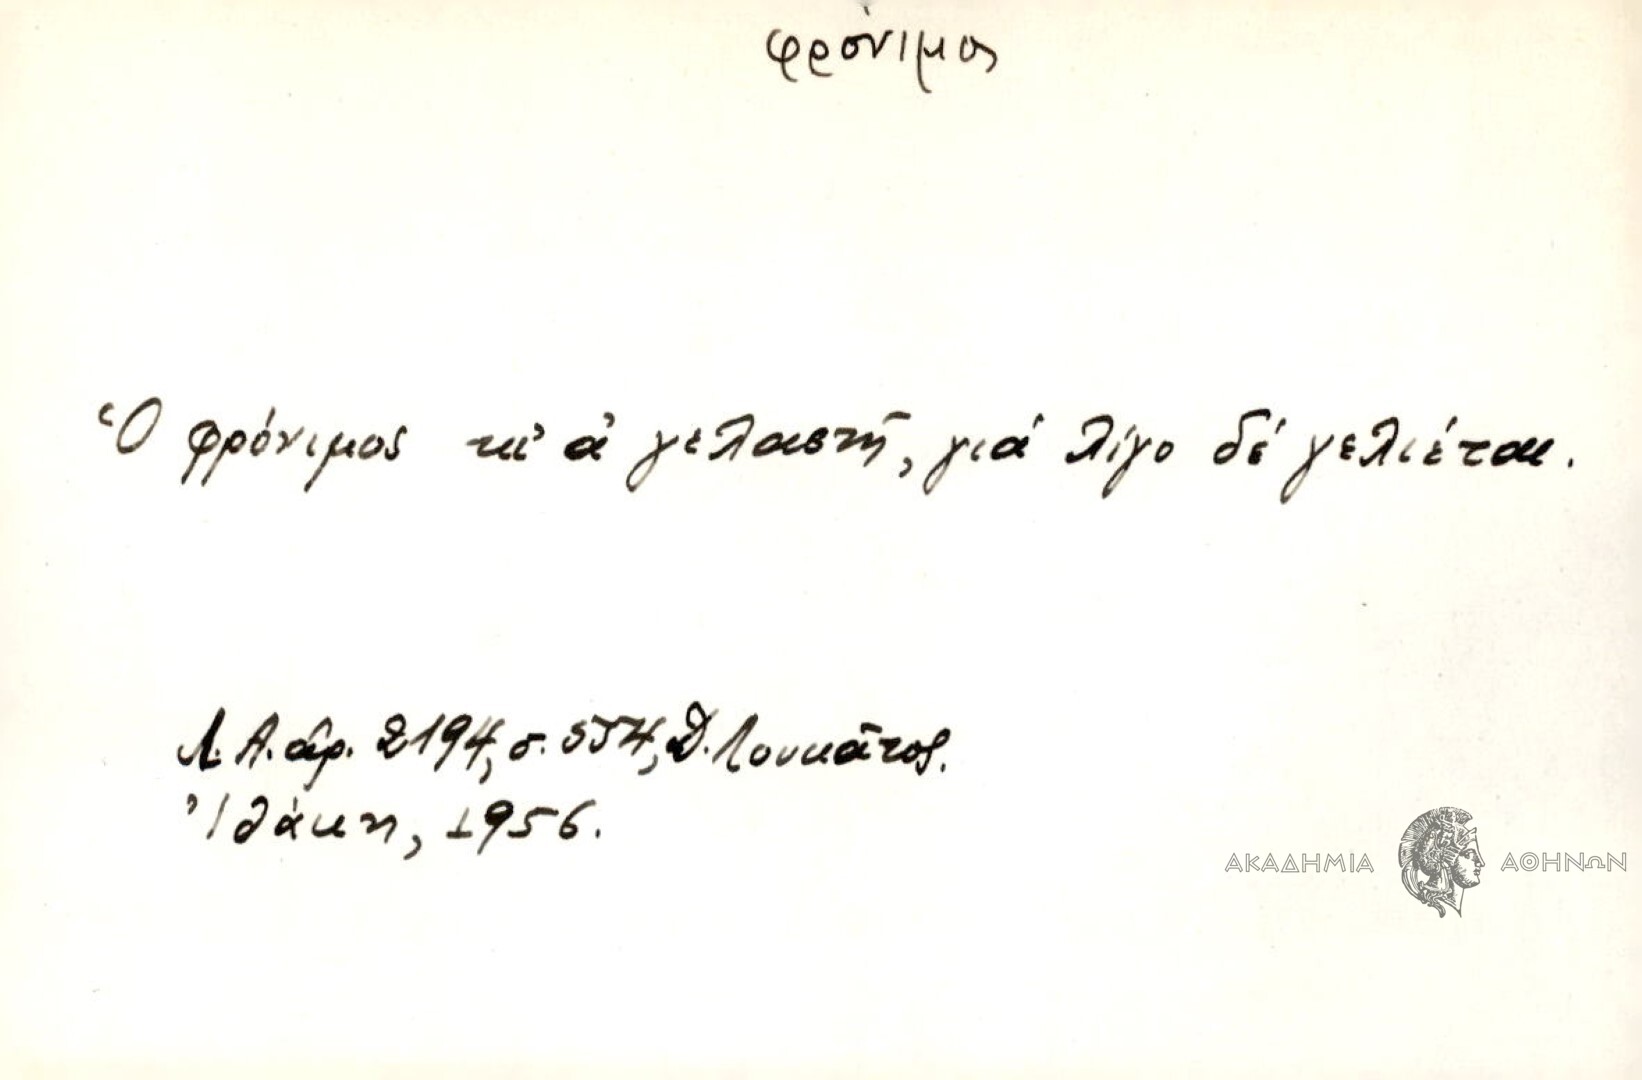 φρόνιμος
Ὁ φρόνιμος κι' ἀ γελαστῆ, γιά λίγο δέ γελιέται.
Λ. Α. ἀρ. 2194, σ. 554, Δ. Λουκᾶτος.
Ἰθάκη, 1956.
ΑΚΑΔΗΜΙΑ ΑΘΗΝΩΝ